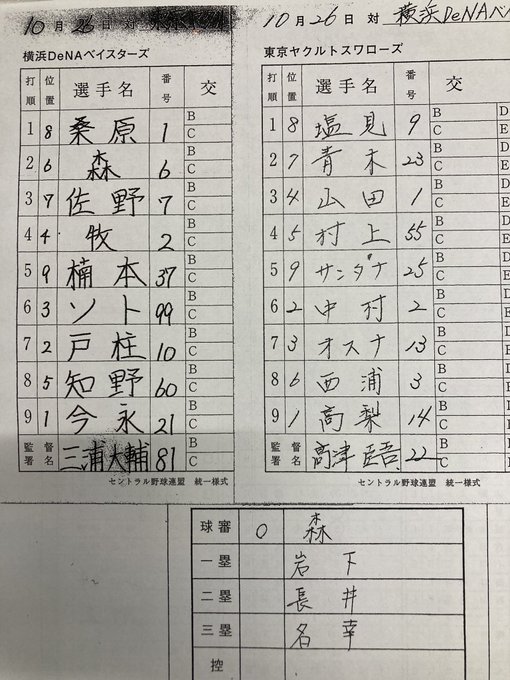 10月26日 対
横浜DeNAベイスターズ
打順 位置 選手名 番号 交
1 8 桑原 1 B C
2 6 森 6 B C
3 7 佐野 7 B C
4 4 牧 2 B C
5 9 楠本 37 B C
6 3 ソト 99 B C
7 2 戸柱 10 B C
8 5 知野 60 B C
9 1 今永 21 B C
監督署名 三浦大輔 81 B C
セントラル野球連盟 統一様式
10月26日 対 横浜DeNAベ
東京ヤクルトスワローズ
打順 位置 選手名 番号 交
1 8 塩見 9 B C D E
2 7 青木 23 B C D E
3 4 山田 1 B C D E
4 5 村上 55 B C D E
5 9 サンタナ 25 B C D E
6 2 中村 2 B C D E
7 3 オスナ 13 B C D E
8 6 西浦 3 B C D E
9 1 高梨 14 B C D E
監督署名 高津臣吾 22 B C
セントラル野球連盟 統一様式
球審 0 森
一塁 岩下
二塁 長井
三塁 名幸
控